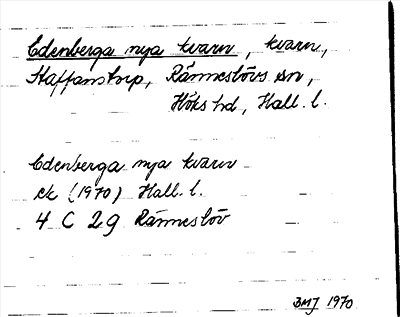 Edenberga nya kvarn, kvarn,
Staffanstorp, Ränneslövs sn,
Höks hd, Hall. l.
Edenberga nya kvarn
ek (1970) Hall. l.
4 C 2 g Ränneslöv
BMJ 1970